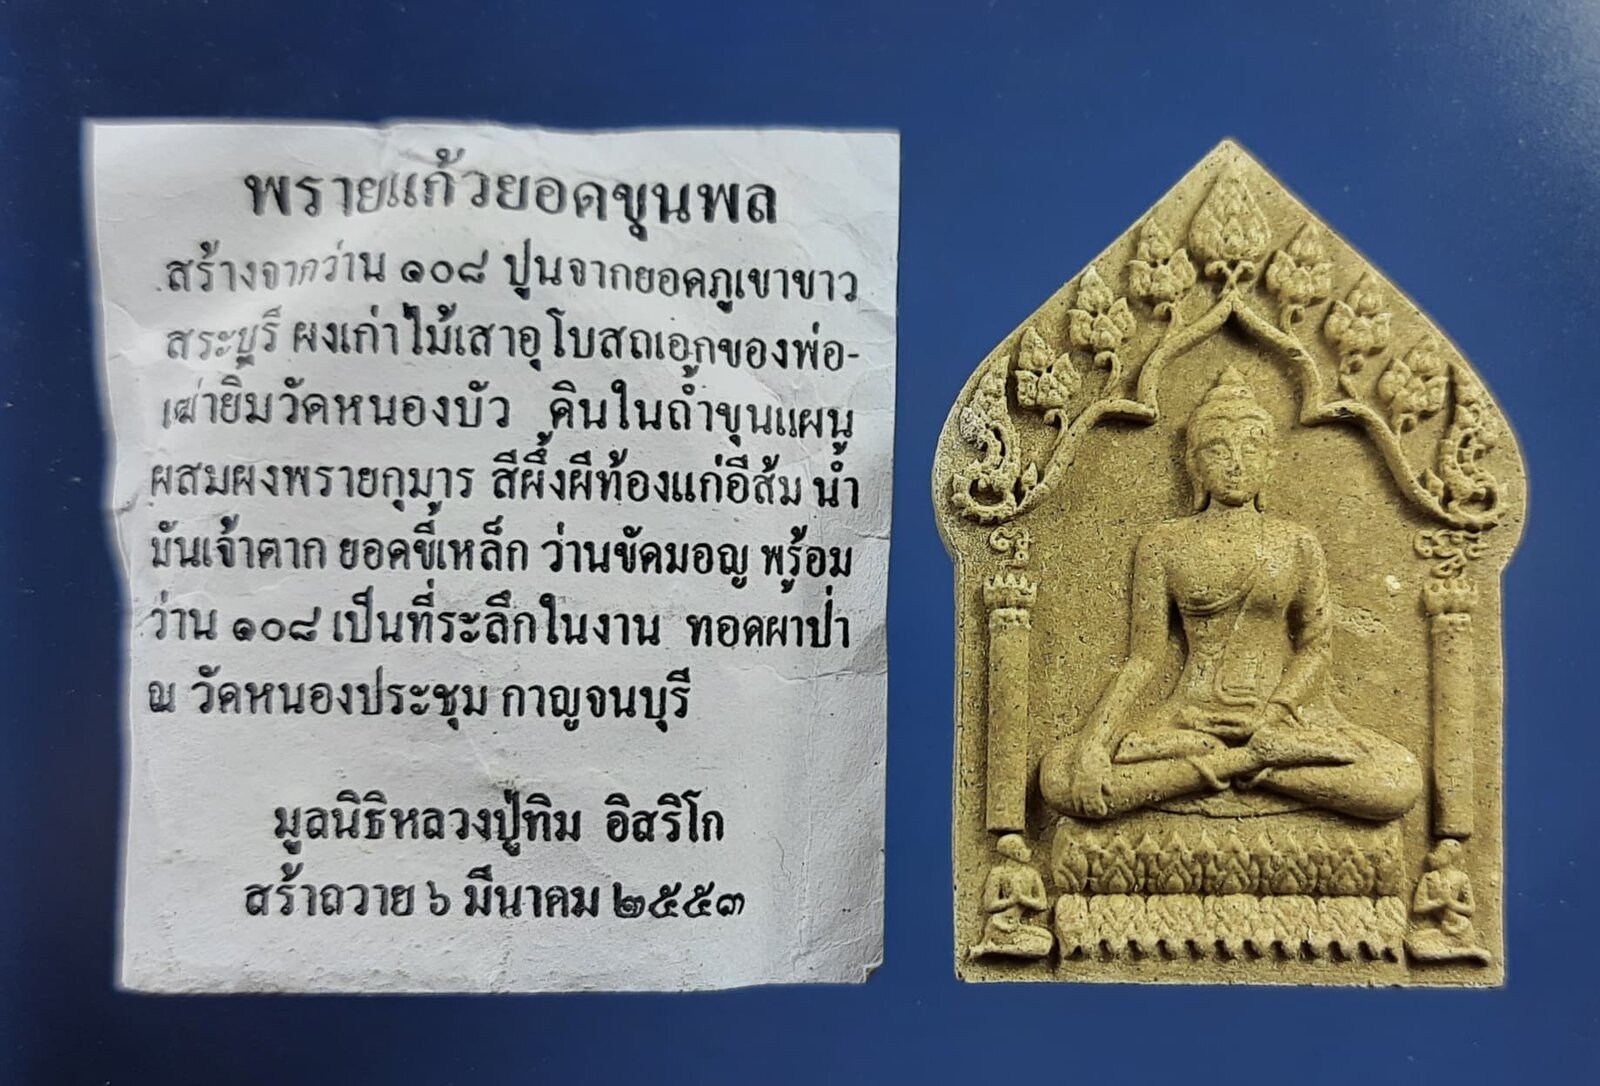 พรายแก้วยอดขุนพล
สร้างจากว่าน ๑๐๘ ปูนจากยอดภูเขาขาว
สระบุรี ผงเก่าไม้เสาอุโบสถเอกของพ่อ-
เฒ่ายิ้มวัดหนองบัว ดินในถ้ำขุนแผน
ผสมผงพรายกุมาร สีผึ้งผีท้องแก่อีส้ม น้ำ
มันเจ้าตาก ยอดขี้เหล็ก ว่านขัดมอญ พร้อม
ว่าน ๑๐๘ เป็นที่ระลึกในงาน ทอดผาป่า
ณ วัดหนองประชุม กาญจนบุรี
มูลนิธิหลวงปู่ทิม อิสริโก
สร้าถวาย ๖ มีนาคม ๒๕๕๓